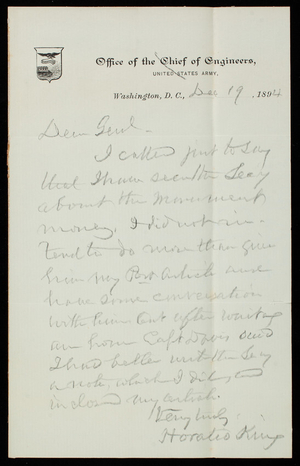 Office of the Chief of Engineers,
UNITED STATES ARMY,
Washington, D. C., Dec 19, 1894
Dear Genl.
I called just to say
that I have seen the Secy
about the Monument
money. I did not in-
tend to do more than give
him my Post article and
have some conversation
with him but after waiting
an hour Capt Davis said
I had better write the Secy
a note, which I did, and
inclosed my article.
Very truly
Horatio King